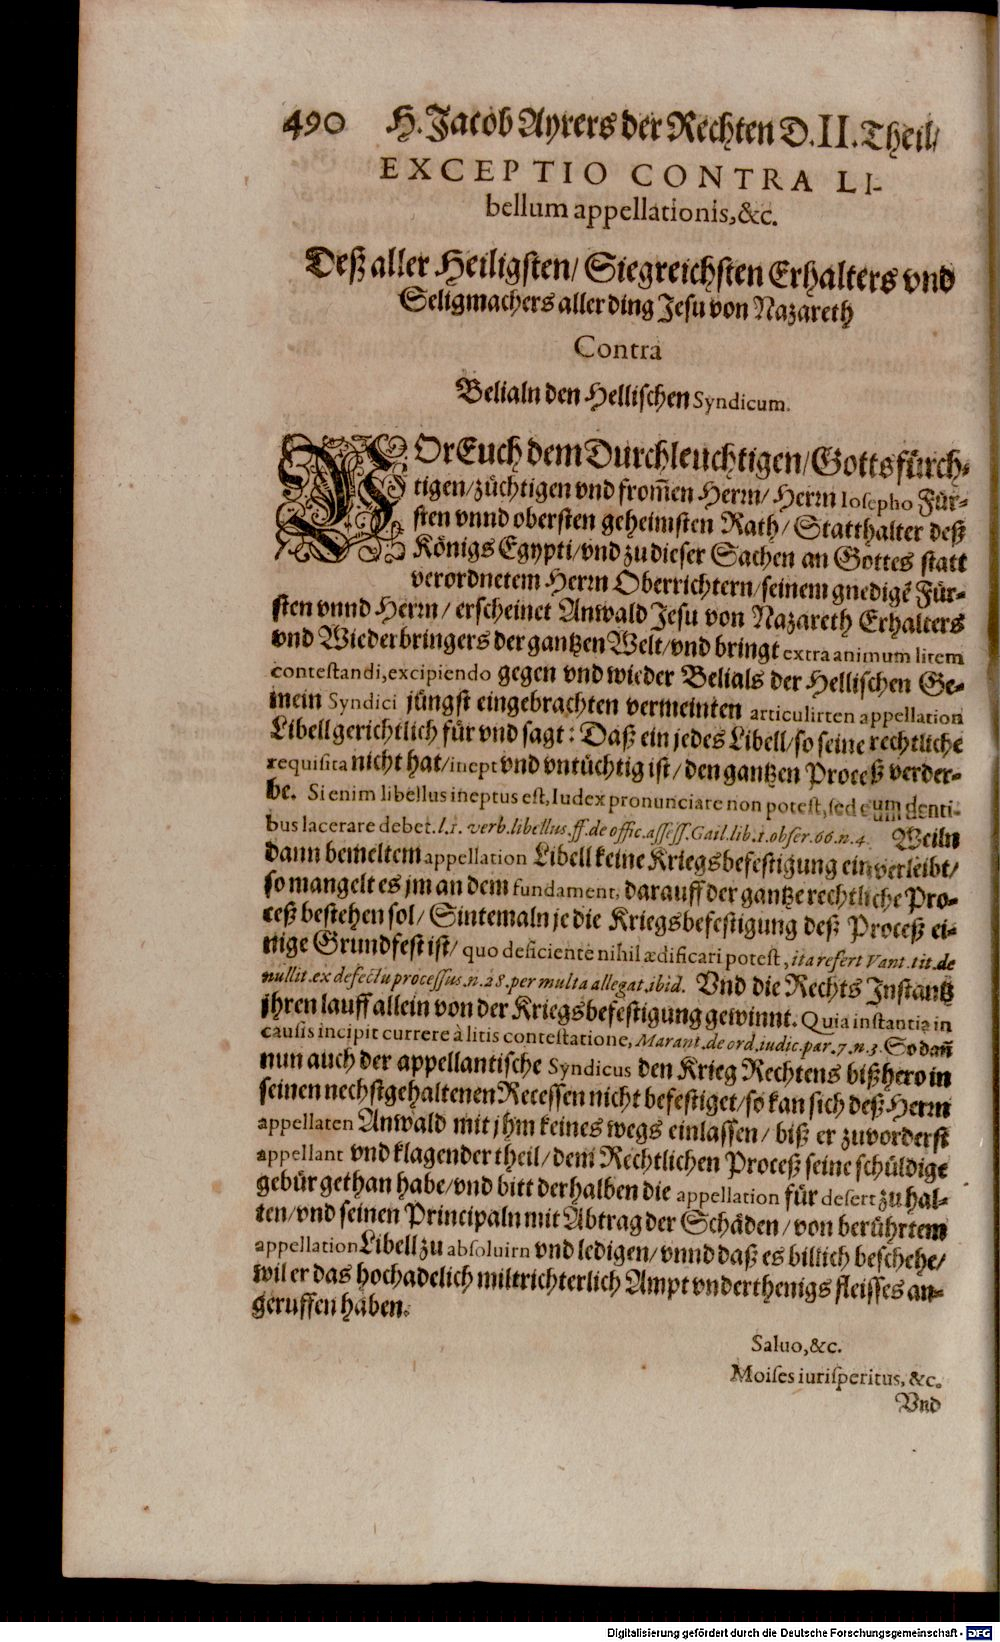 490 H. Jacob Ayrers der Rechten D. II. Theil/
EXCEPTIO CONTRA LI-
bellum appellationis, &c.
Deß aller Heiligsten/ Siegreichsten Erhalters vnd
Seligmachers aller ding Jesu von Nazareth
Contra
Belialn den Hellischen Syndicum.
VOr Euch dem Durchleuchtigen/ Gottsfürch-
tigen/ züchtigen vnd from̃en Herrn/ Herrn Iosepho Für-
sten vnnd obersten geheimsten Rath/ Statthalter deß
Königs Egypti/ vnd zu dieser Sachen an Gottes statt
verordnetem Herrn Oberrichtern/ seinem gnedigẽ Für-
sten vnnd Herrn/ erscheinet Anwald Jesu von Nazareth Erhalters
vnd Wiederbringers der gantzen Welt/ vnd bringt extra animum litem
contestandi, excipiendo gegen vnd wieder Belials der Hellischen Ge-
mein Syndici jüngst eingebrachten vermeinten articulirten appellation
Libell gerichtlich für vnd sagt: Daß ein jedes Libell/ so seine rechtliche
requisita nicht hat/ inept vnd vntüchtig ist/ den gantzen Proceß verder-
be. Si enim libellus ineptus est, Iudex pronunciare non potest, sed eum denti-
bus lacerare debet. l. 1. verb. libellus. ff. de offic. assess. Gail. lib. 1. obser. 66. n. 4. Weiln
dann bemeltem appellation Libell keine Kriegsbefestigung einverleibt/
so mangelt es jm an dem fundament, darauff der gantze rechtliche Pro-
ceß bestehen sol/ Sintemaln je die Kriegsbefestigung deß Proceß ei-
nige Grundfest ist/ quo deficiente nihil ædificari potest, ita refert Vant. tit. de
nullit. ex defectu processus. n. 28. per multa allegat. ibid. Vnd die Rechts Instantz
jhren lauff allein von der Kriegsbefestigung gewinnt. Quia instantia in
causis incipit currere à litis contestatione, Marant. de ord. iudic. par. 7. n. 3. So dañ
nun auch der appellantische Syndicus den Krieg Rechtens bißhero in
seinen nechstgehaltenen Recessen nicht befestiget/ so kan sich deß Herrn
appellaten Anwald mit jhm keines wegs einlassen/ biß er zuvorderst
appellant vnd klagender theil/ dem Rechtlichen Proceß seine schüldige
gebür gethan habe/ vnd bitt derhalben die appellation für desert zu hal-
ten/ vnd seinen Principaln mit Abtrag der Schäden/ von berührtem
appellation Libell zu absoluirn vnd ledigen/ vnnd daß es billich beschehe/
wil er das hochadelich miltrichterlich Ampt vnderthenigs fleisses an-
geruffen haben.
Saluo, &c.
Moises iurisperitus, &c.
Vnd
Digitalisierung gefördert durch die Deutsche Forschungsgemeinschaft - DFG